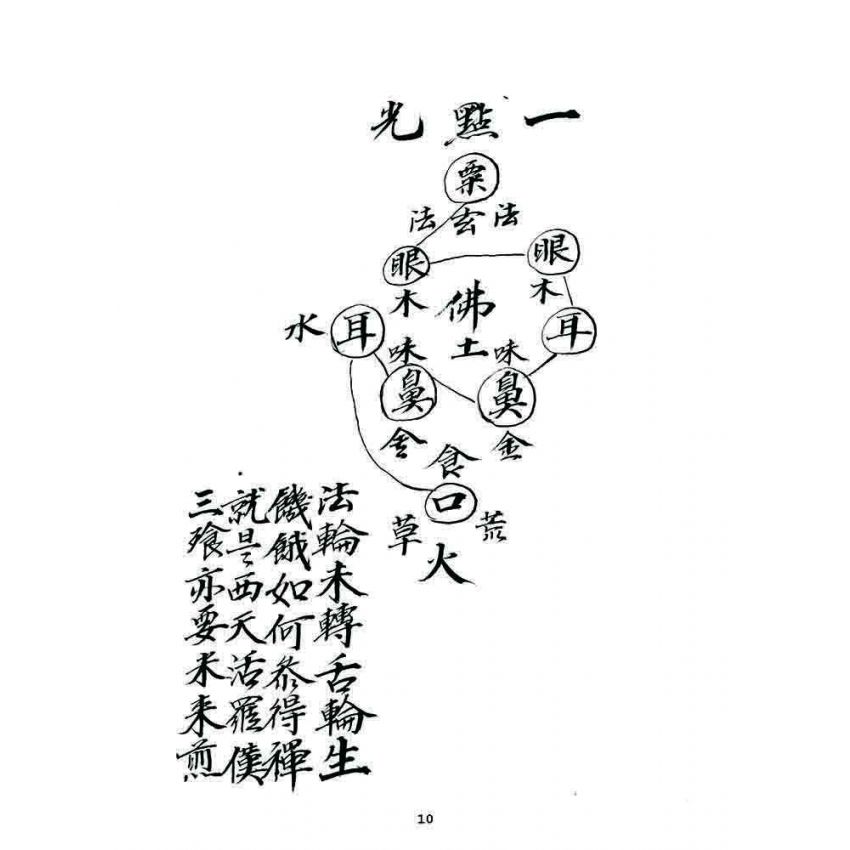 一點光
粟
法玄法
眼 眼
木 佛 木
水 耳 耳
味 土 味
鼻 鼻
金 食 金
口
草 荒
火
法輪未轉舌輪生
饑餓如何參得禪
就是西天活羅漢
三飱亦要米来煎
10